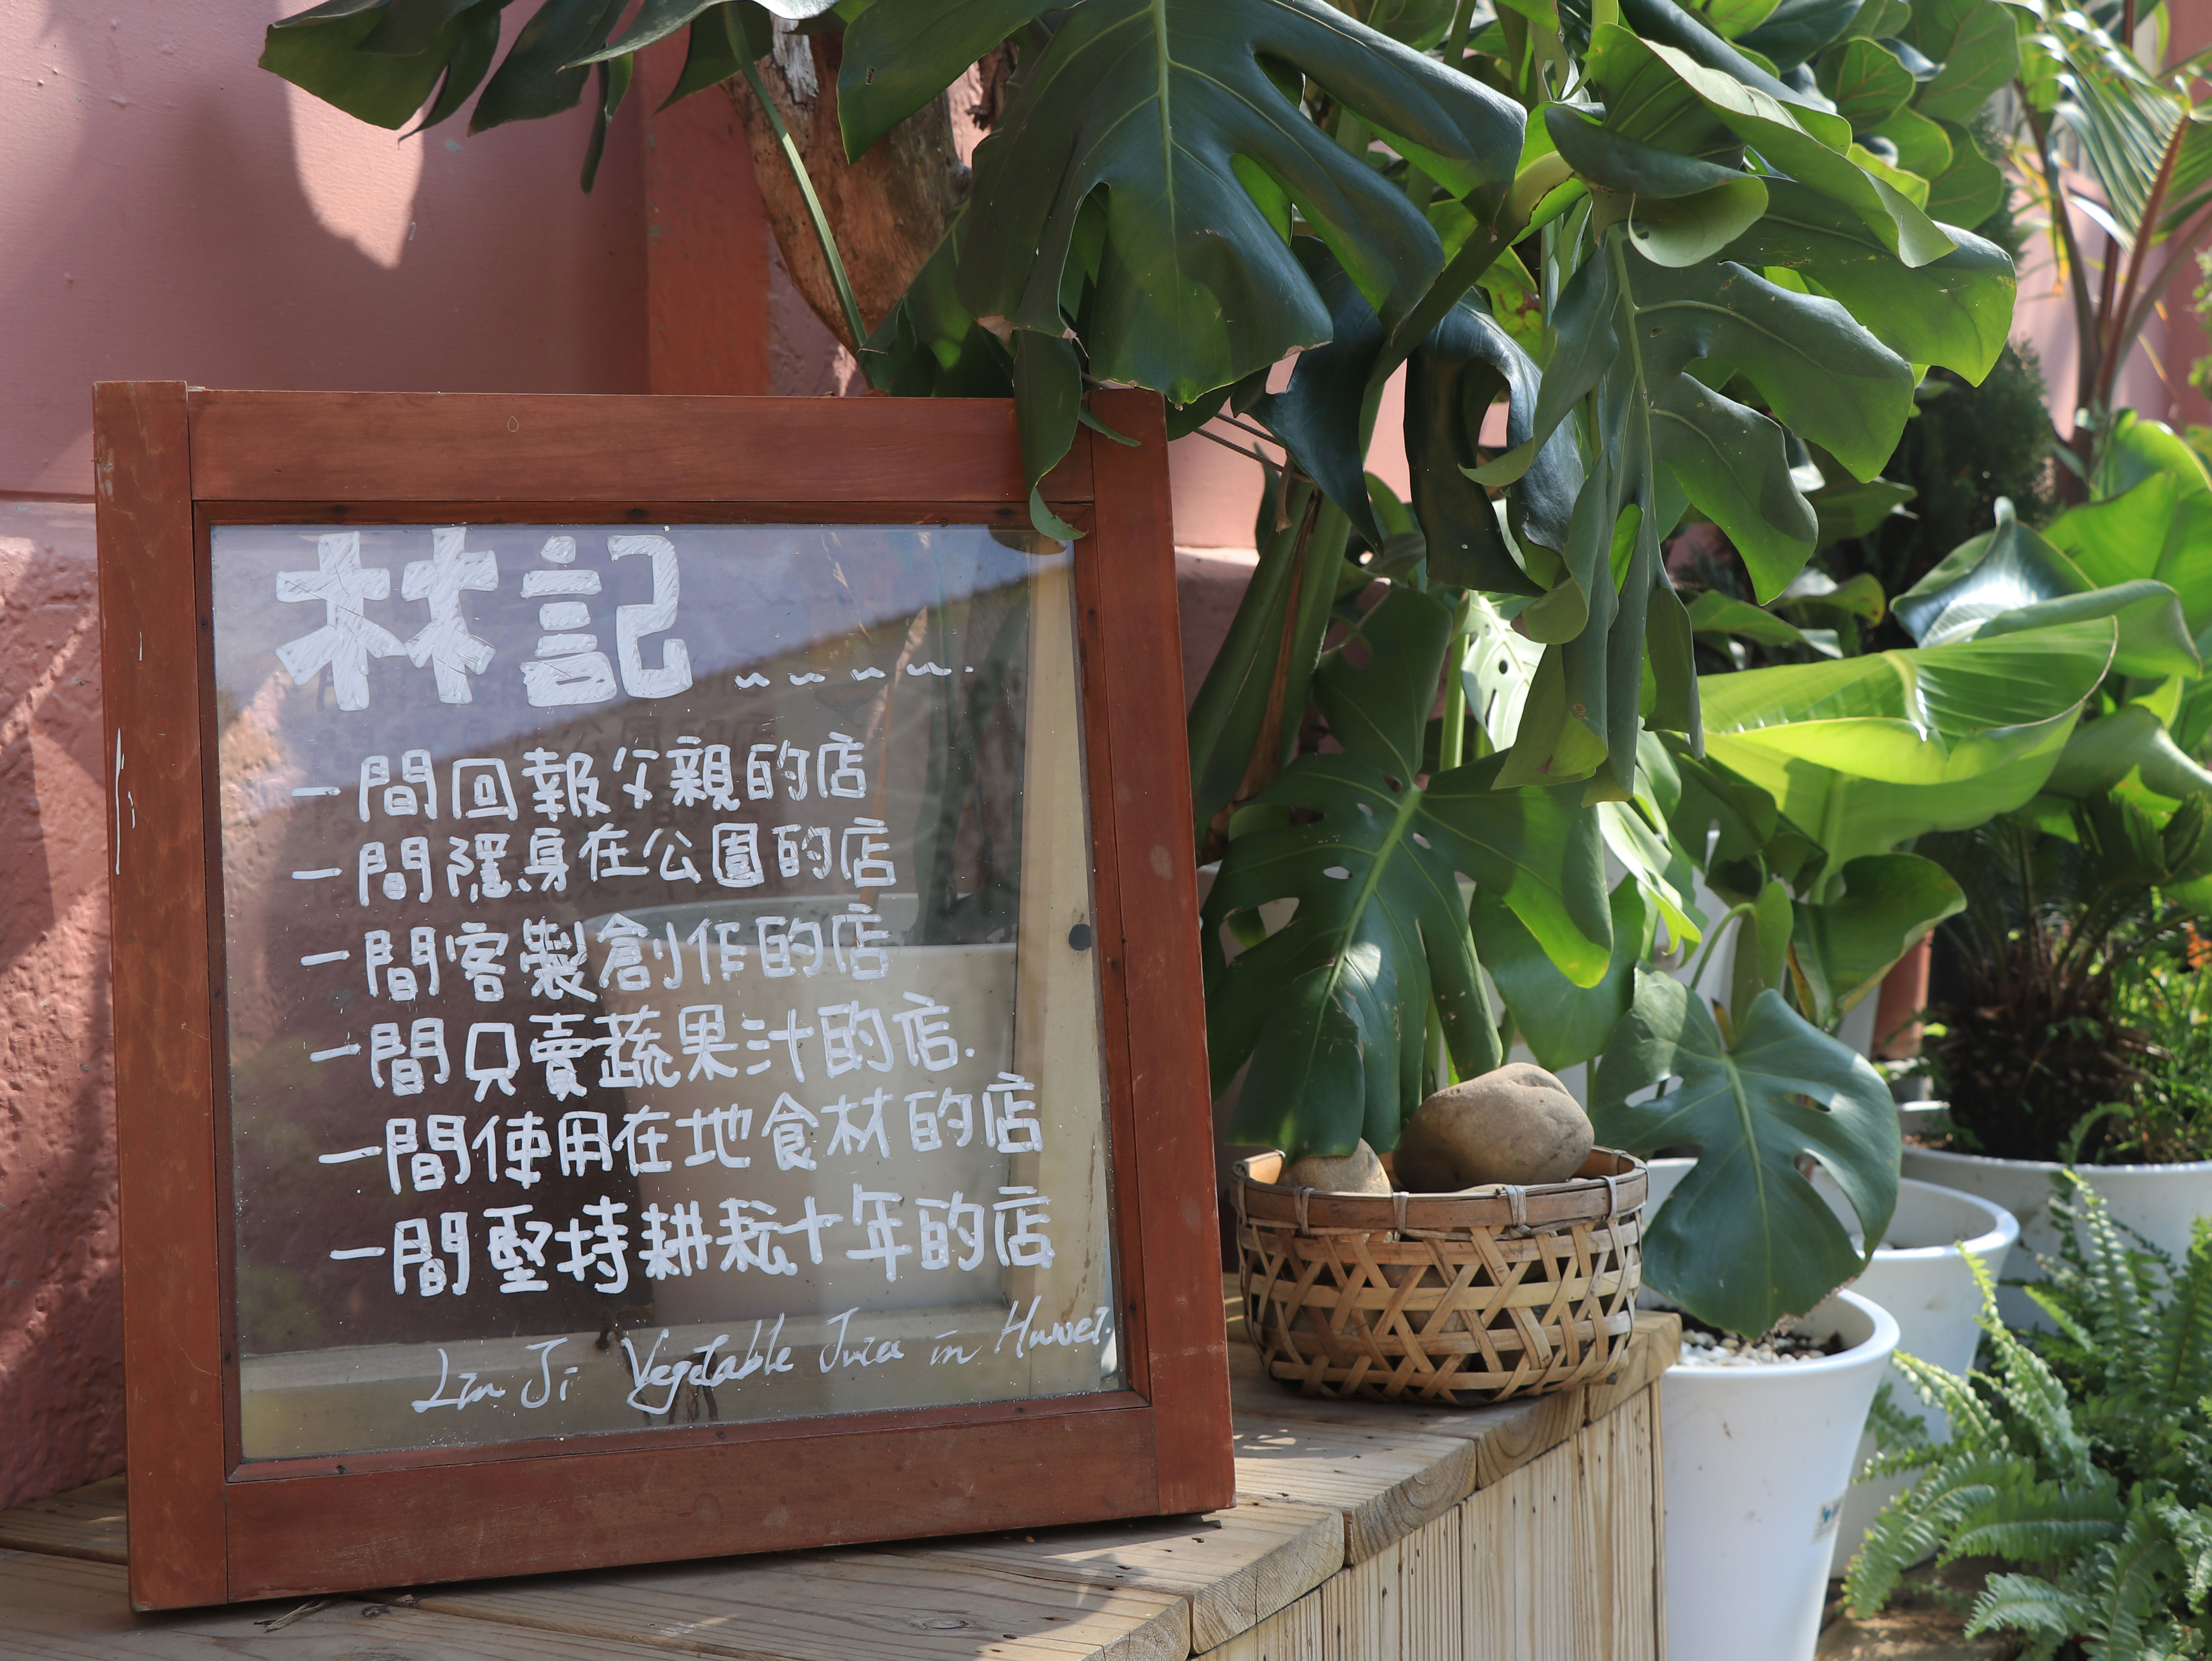 林記
一間回報父親的店
一間隱身在公園的店
一間客製創作的店
一間只賣蔬果汁的店.
一間使用在地食材的店
一間堅持耕耘十年的店
Lin Ji Vegetable Juice in Huwei.